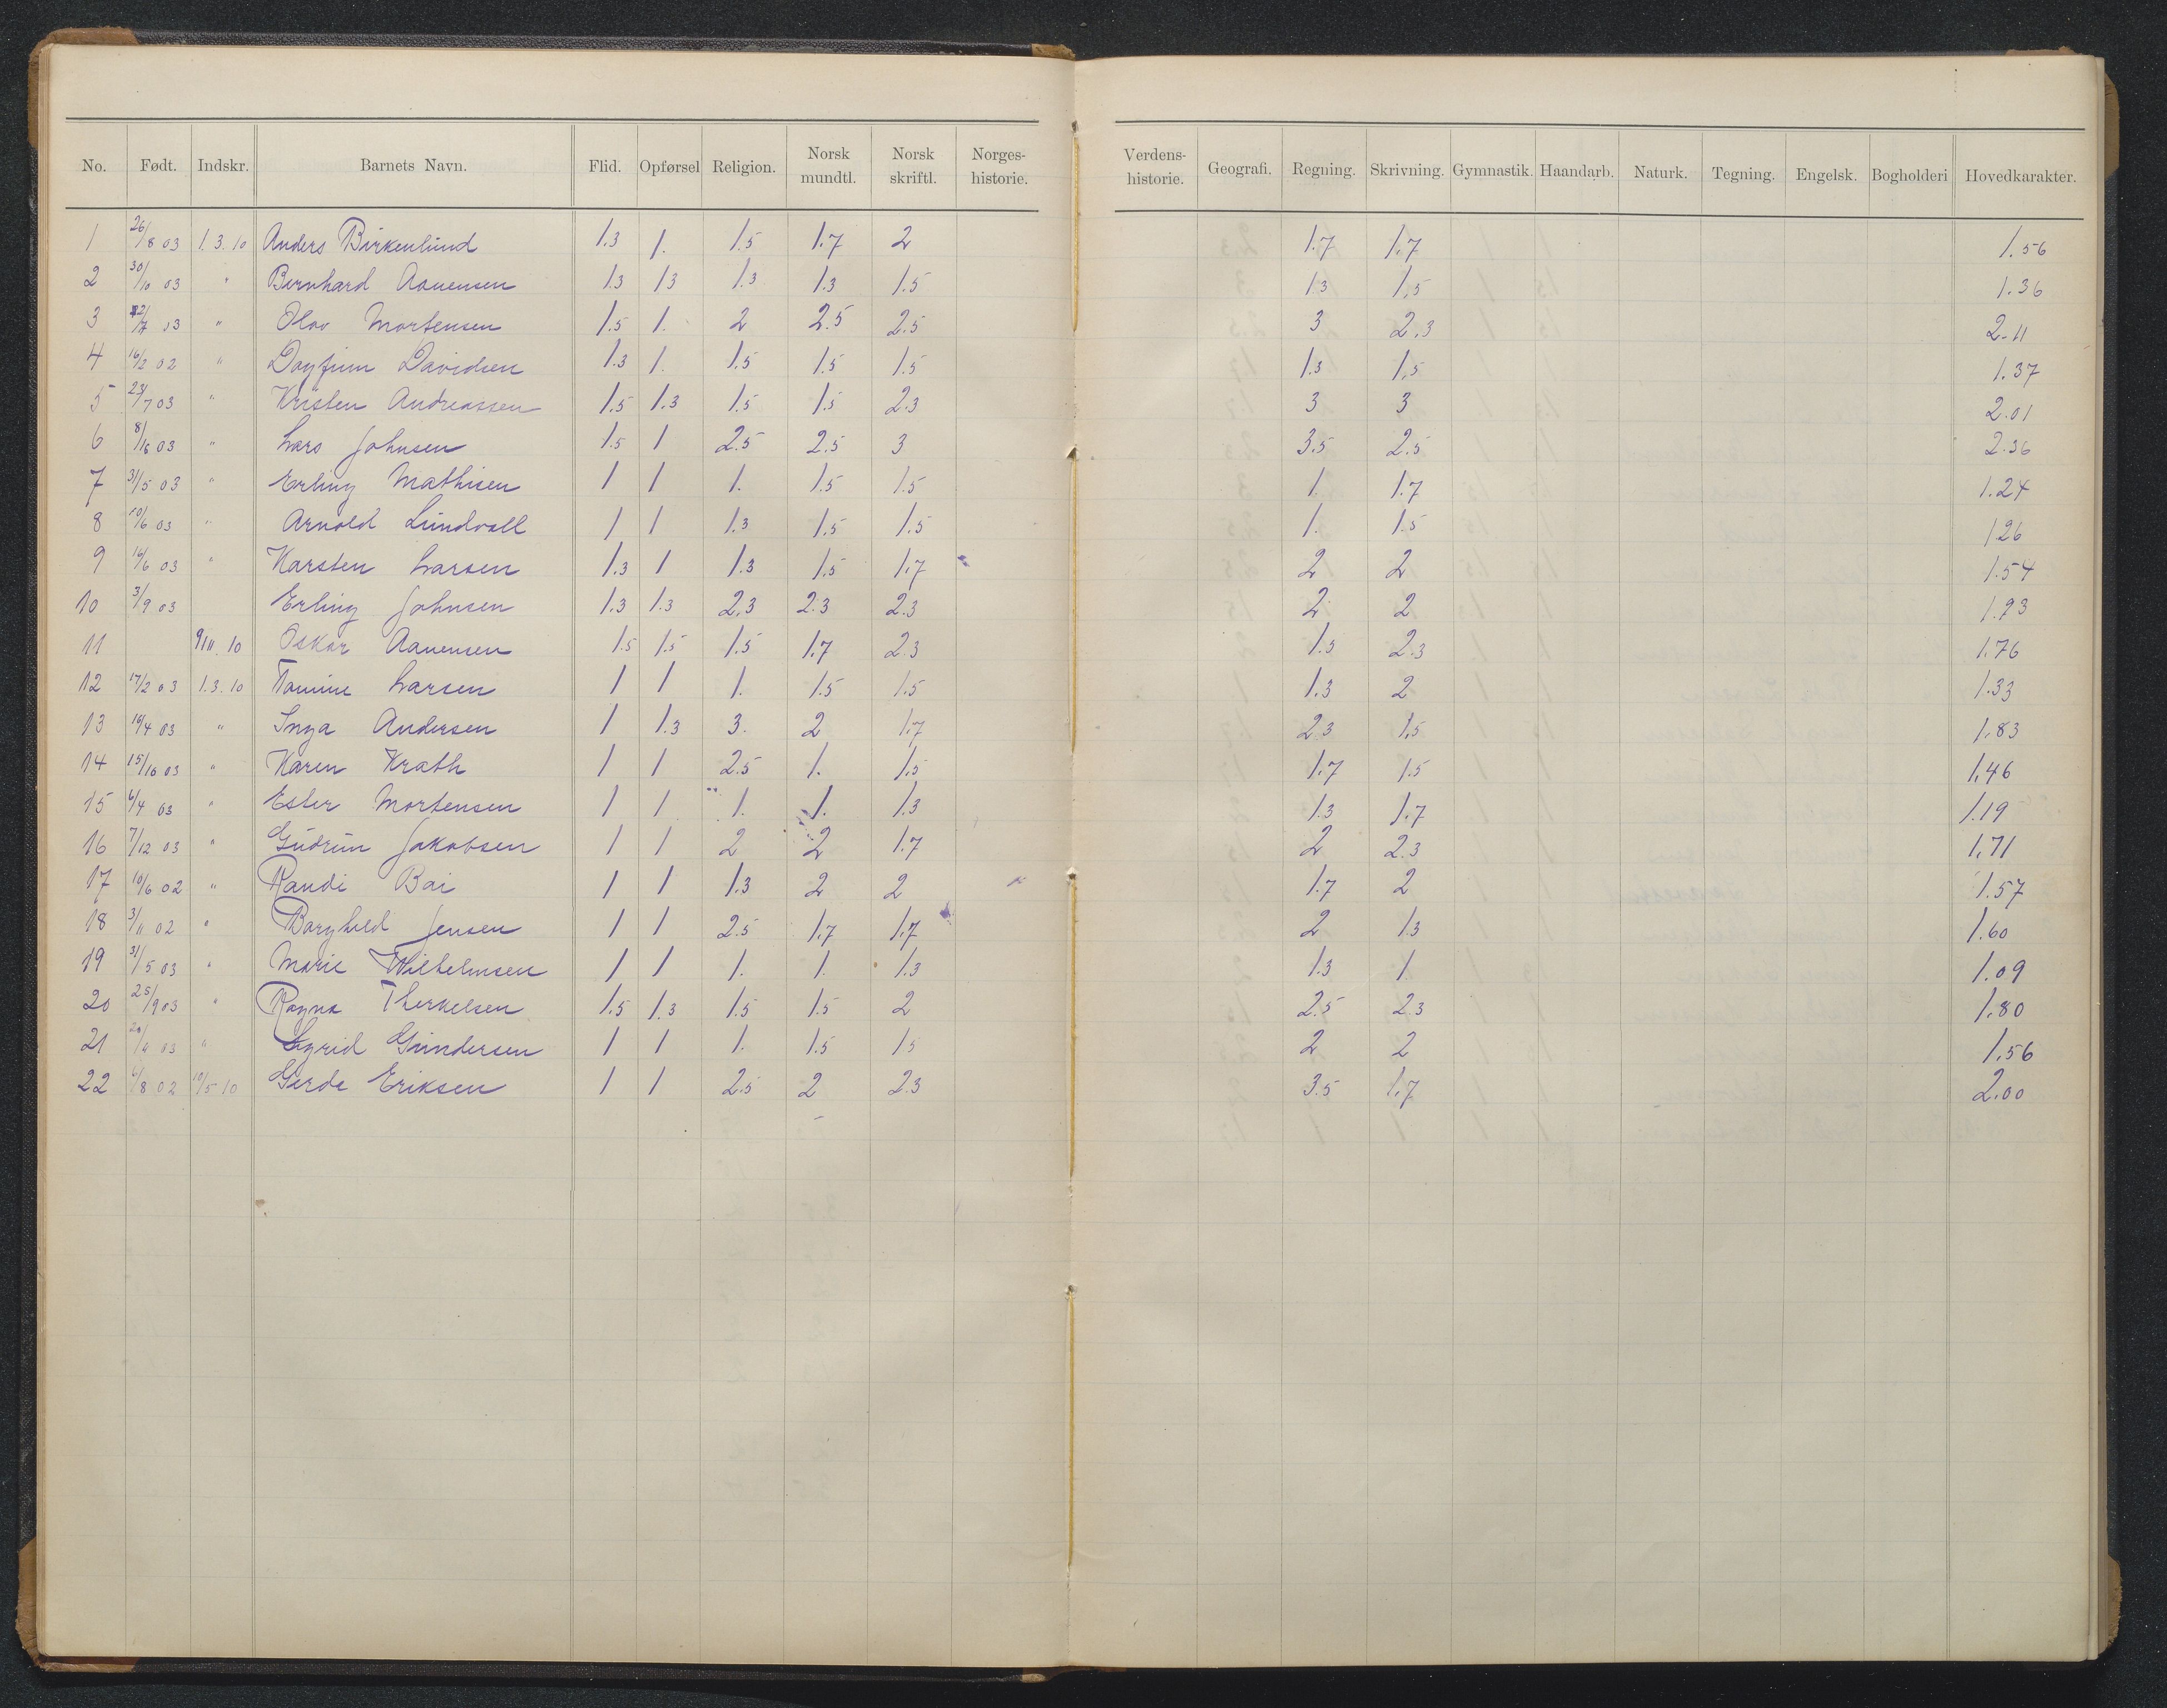 No. Født. Indskr. Barnets Navn. Flid. Opførsel Religion. Norsk mundtl. Norsk skriftl. Norges-historie. Verdens-historie. Geografi. Regning. Skrivning. Gymnastik. Haandarb. Naturk. Tegning. Engelsk. Bogholderi Hovedkarakter.
1 26/8 03 1.3.10 Anders Birkenlund 1.3 1. 1.5 1.7 2 1.7 1.7 1.56
2 30/10 03 " Bernhard Aanensen 1.3 1.3 1.3 1.3 1.5 1.3 1.5 1.36
3 " Olav Mortensen 1.5 1. 2 2.5 2.5 3 2.3 2.11
4 16/2 02 " Dagfinn Davidsen 1.3 1. 1.5 1.5 1.5 1.3 1.5 1.37
5 23/7 03 " Kristen Andreassen 1.5 1.3 1.5 1.5 2.3 3 3 2.01
6 8/10 03 " Lars Johnsen 1.5 1 2.5 2.5 3 3.5 2.5 2.36
7 31/5 03 " Erling Mathisen 1 1 1. 1.5 1.5 1 1.7 1.24
8 " Arnold Lundvall 1 1 1.3 1.5 1.5 1. 1.5 1.26
9 16/6 03 " Karsten Larsen 1.3 1 1.3 1.5 1.7 2 2 1.54
10 3/9 03 Erling Johnsen 1.3 1.3 2.3 2.3 2.3 2 2 1.93
11 9/11.10 Oskar Aanensen 1.5 1.5 1.5 1.7 2.3 1.5 2.3 1.76
12 17/2 03 1.3.10 Tomine Larsen 1 1 1. 1.5 1.5 1.3 2 1.33
13 10/4 03 " Inga Andersen 1 1.3 3. 2 1.7 2.3 1.5 1.83
14 15/10 03 " Karen Krath 1 1 2.5 1. 1.5 1.7 1.5 1.46
15 6/4 03 " Ester Mortensen 1 1 1. 1. 1.3 1.3 1.7 1.19
16 7/12 03 " Gudrun Jakobsen 1 1 2 2 1.7 2 2.3 1.71
17 10/6 02 " Randi Bai 1 1 1.3 2 2 1.7 2 1.57
18 3/11 02 " Borghild Jensen 1 1 2.5 1.7 1.7 2 1.3 1.60
19 31/5 03 " Marie Wilhelmsen 1 1 1. 1. 1.3 1.3 1 1.09
20 25/9 03 " Ragna Therkelsen 1.5 1.3 1.5 1.5 2 2.5 2.3 1.80
21 20/9 03 " Sigrid Gundersen 1 1 1. 1.5 1.5 2 2 1.56
22 6/8 02 10/5 10 Gerda Eriksen 1 1 2.5 2 2.3 3.5 1.7 2.00